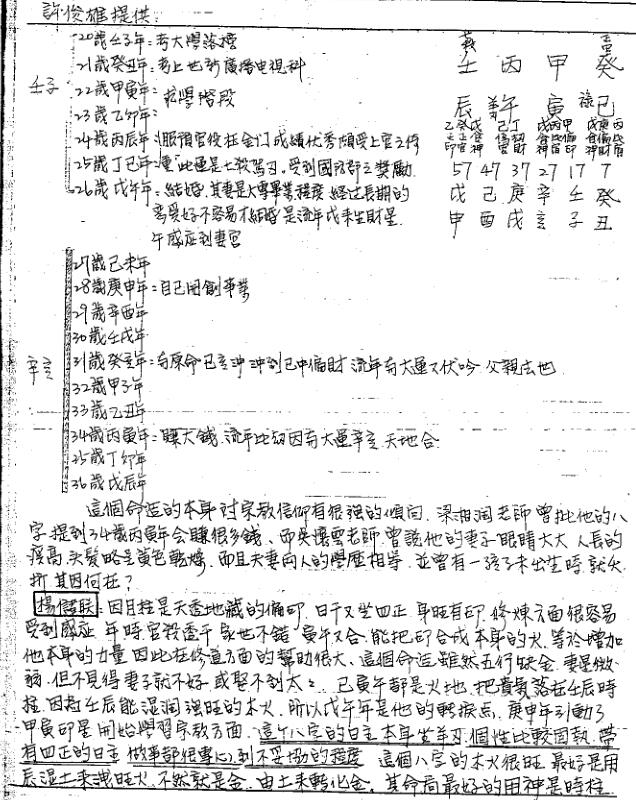 許俊雄提供:
20歲壬子年:考大學落榜
21歲癸丑年:考上世新廣播電視科
壬子
22歲甲寅年:求學階段
23歲乙卯年:
24歲丙辰年:服預官役在金門成績優秀頗受上官之
25歲丁巳年:重"此運是七殺駕刃。受到國防部之獎勵
26歲戊午年:結婚,其妻是大專畢業程度 經過長期的
戀愛好不容易才結婚是流年戊來生財星
午感应到妻宮
壬 丙 甲 癸
辰 午 寅 巳
57 47 37 27 17 7
戊 己 庚 辛 壬 癸
申 酉 戌 亥 子 丑
27歲己未年
28歲庚申年:自己開創事業
29歲辛酉年
30歲壬戌年
辛亥
31歲癸亥年:有原命巳亥沖 沖到巳中偏財 流年有大運又伏吟 父親去世
32歲甲子年
33歲乙丑年
34歲丙寅年:賺大錢.流年比劫因有大運辛亥 天地合
35歲丁卯年
36歲戊辰年
這個命造的本身對宗教信仰有很强的傾向.梁湘润老師曾批他的八
字提到34歲丙寅年会賺很多錢、而 老師曾說他的妻子眼睛大大 人長的
高.头髮略呈黄色乾燥.而且夫妻两人的學歷相等.並曾有一孩子未出生時就夭
折 其因何在?
:因月柱是天透地藏的偏印.日干又坐四正 身旺有印.修煉方面很容易
受到感应 年時官殺透干 也不錯 寅午又合.能把印合成本身的火.等於增加
他本身的力量 因此在修道方面的幫助很大、這個命造雖然五行缺金.妻星微
弱.但不見得妻子就不好.或娶不到太太.巳寅午都是火地.把貴氣落在壬辰時
柱.因為壬辰能濕润强旺的木火.所以戊午年是他的轉捩点.庚申年引動了
甲寅印星開始學習宗教方面.這个八字的日主本身坐羊刃.個性比較固執.帶
有四正的日主 做事都很專心.到不妥協的程度 這個八字的木火很旺.最好是用
辰湿土来洩旺火.不然就是金.由土来轉化金.其命局最好的用神是時柱